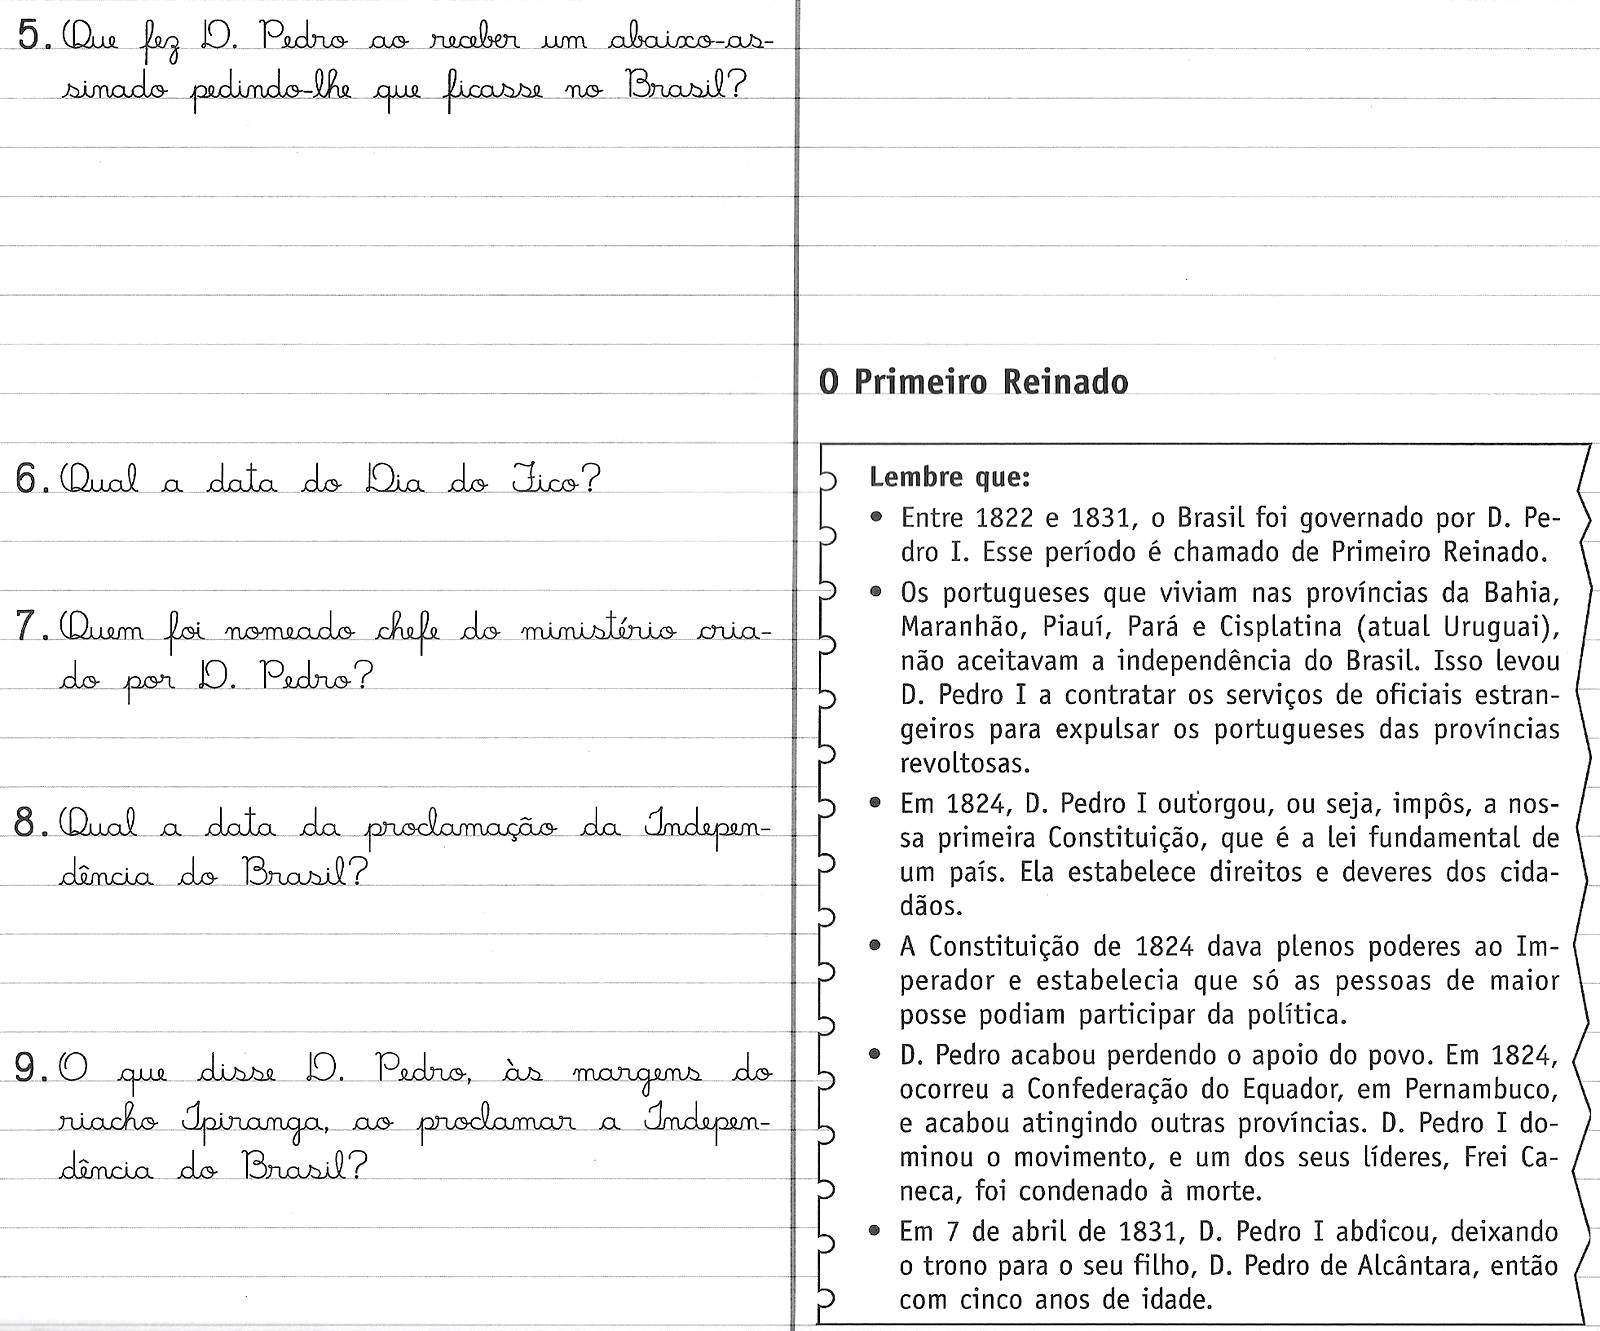 5. Que fez D. Pedro ao receber um abaixo-as-
sinado pedindo-lhe que ficasse no Brasil?
6. Qual a data do Dia do Fico?
7. Quem foi nomeado chefe do ministério cria-
do por D. Pedro?
8. Qual a data da proclamação da Indepen-
dência do Brasil?
9. O que disse D. Pedro, às margens do
riacho Ipiranga, ao proclamar a Indepen-
dência do Brasil?
O Primeiro Reinado
Lembre que:
• Entre 1822 e 1831, o Brasil foi governado por D. Pe-
dro I. Esse período é chamado de Primeiro Reinado.
• Os portugueses que viviam nas províncias da Bahia,
Maranhão, Piauí, Pará e Cisplatina (atual Uruguai),
não aceitavam a independência do Brasil. Isso levou
D. Pedro I a contratar os serviços de oficiais estran-
geiros para expulsar os portugueses das províncias
revoltosas.
• Em 1824, D. Pedro I outorgou, ou seja, impôs, a nos-
sa primeira Constituição, que é a lei fundamental de
um país. Ela estabelece direitos e deveres dos cida-
dãos.
• A Constituição de 1824 dava plenos poderes ao Im-
perador e estabelecia que só as pessoas de maior
posse podiam participar da política.
• D. Pedro acabou perdendo o apoio do povo. Em 1824,
ocorreu a Confederação do Equador, em Pernambuco,
e acabou atingindo outras províncias. D. Pedro I do-
minou o movimento, e um dos seus líderes, Frei Ca-
neca, foi condenado à morte.
• Em 7 de abril de 1831, D. Pedro I abdicou, deixando
o trono para o seu filho, D. Pedro de Alcântara, então
com cinco anos de idade.